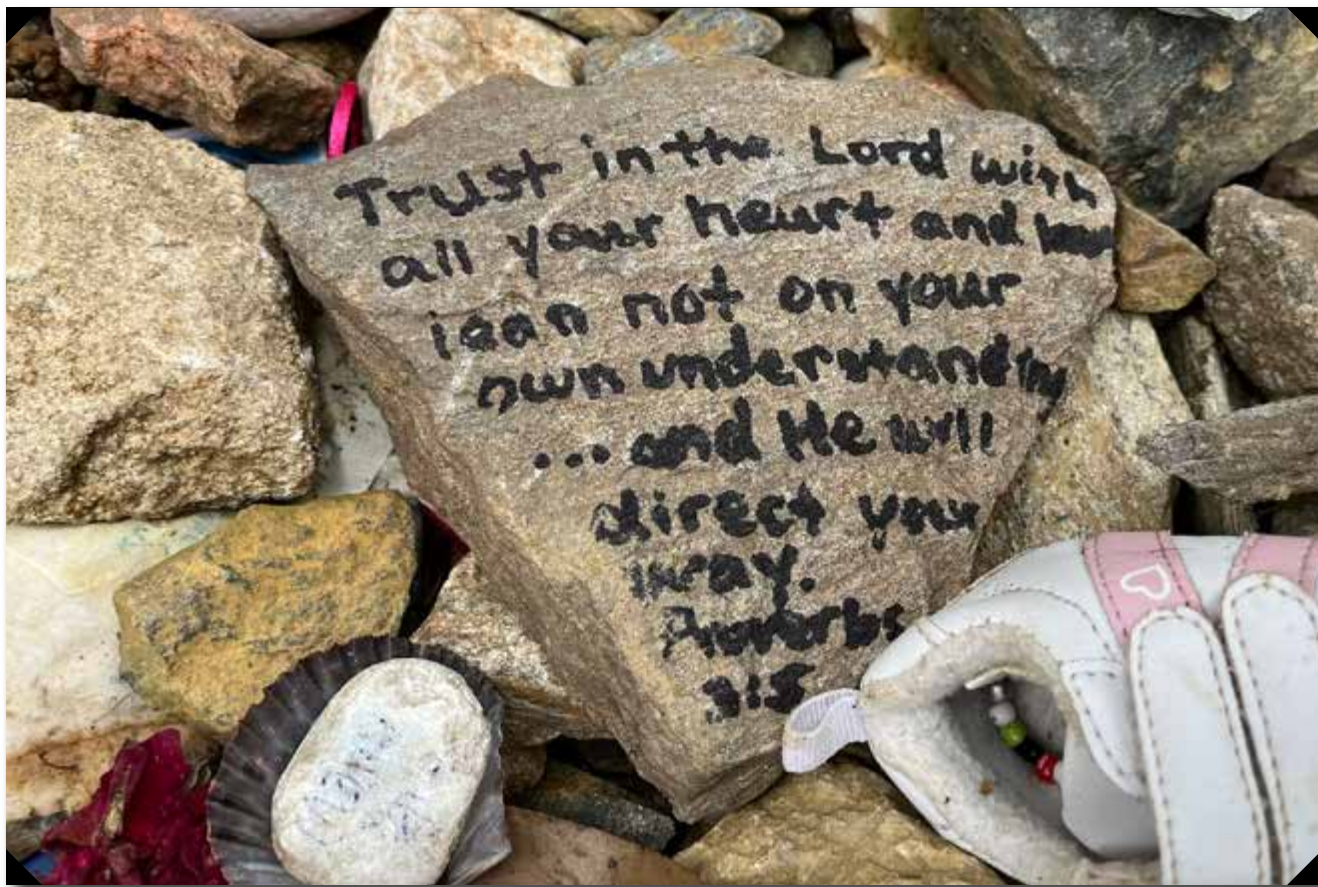 Trust in the Lord with
all your heart and
lean not on your
own understanding
...and He will
direct your
way.
Proverbs
3:5